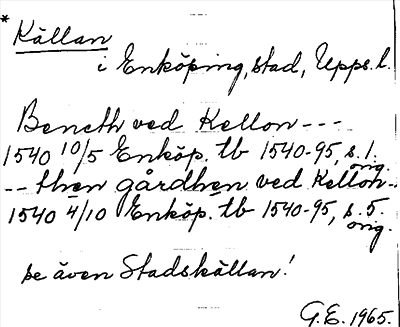 * Källan
i Enköping, stad, Upps. l.
Beneth ved Kellon ---
1540 10/5 Enköp. tb 1540-95, s. 1.
orig.
-- then gårdhen ved Kellon-
1540 4/10 Enköp. tb 1540-95, s. 5.
orig.
se även Stadskällan!
G.E. 1965.